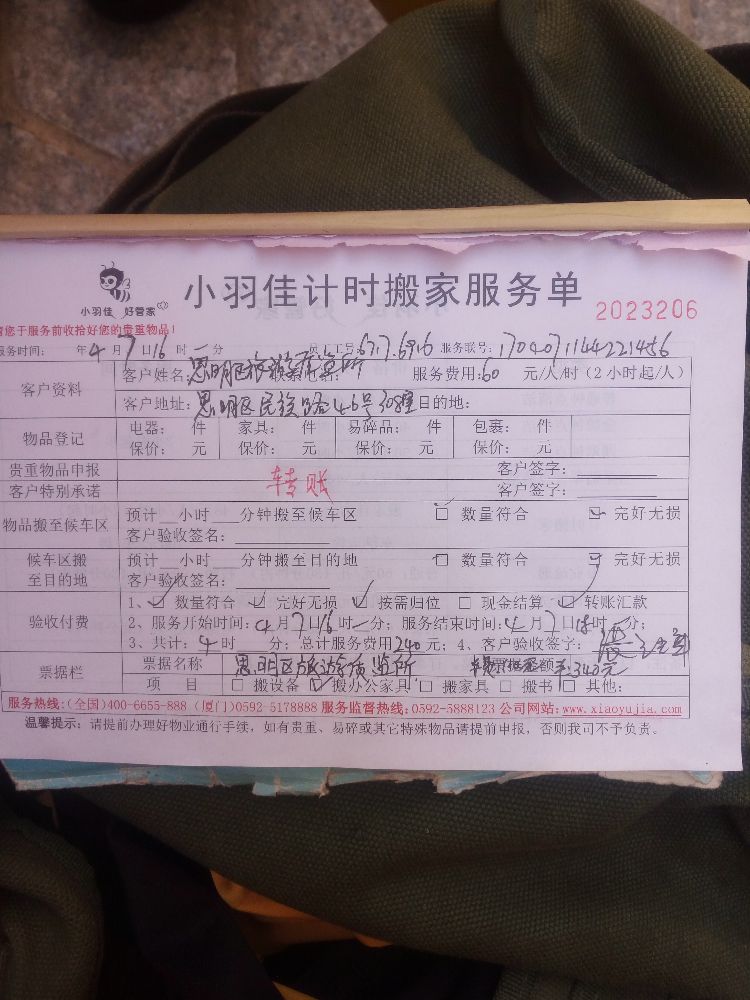 小羽佳 好管家
小羽佳计时搬家服务单 2023206
请您于服务前收拾好您的贵重物品!
服务时间: 年4月7日16时一分 员工工号:677.6916 服务联号:1704071144221456
客户资料
客户姓名:思明区旅游质监所 联系电话: 服务费用:60 元/人/时(2小时起/人)
客户地址:思明区民族路46号303室 目的地:
物品登记
电器: 件 家具: 件 易碎品: 件 包裹: 件
保价: 元 保价: 元 保价: 元 保价: 元
贵重物品申报 客户签字:
转账
客户特别承诺 客户签字:
物品搬至候车区 预计__小时___分钟搬至候车区 □ 数量符合 ☑ 完好无损
客户验收签名:
候车区搬至目的地 预计__小时___分钟搬至目的地 □ 数量符合 ☑ 完好无损
客户验收签名:
验收付费
1、☑ 数量符合 ☑ 完好无损 ☑ 按需归位 □ 现金结算 ☑ 转账汇款
2、服务开始时间:4月7日16时一分; 服务结束时间:4月7日18时一分;
3、共计:4时 分; 总计服务费用240元; 4、客户验收签字:
票据栏
票据名称 思明区旅游质监所 金额 240元
项 目 □ 搬设备 ☑ 搬办公家具 □ 搬家具 □ 搬书 □ 其他:
服务热线:(全国)400-6655-888 (厦门)0592-5178888 服务监督热线:0592-5888123 公司网站:www.xiaoyujia.com
温馨提示: 请提前办理好物业通行手续, 如有贵重、易碎或其它特殊物品请提前申报, 否则我司不予负责。